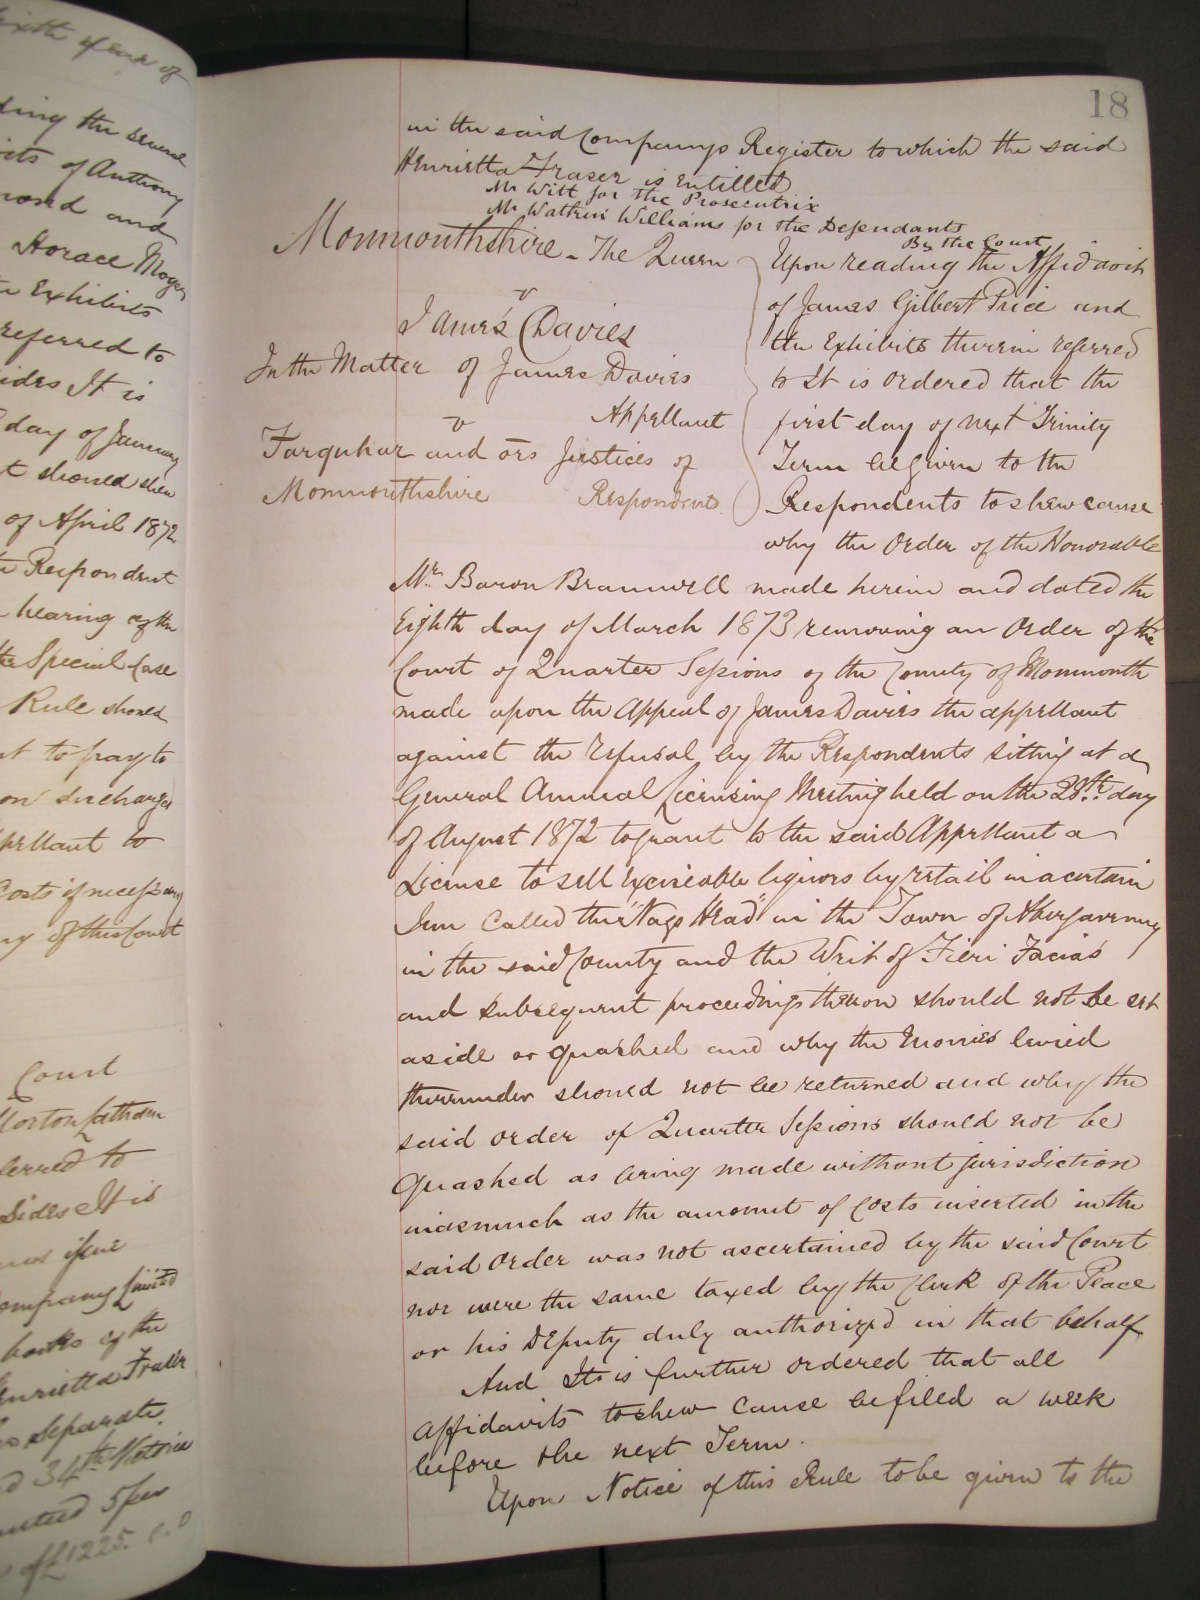 sixth year of
ding the several
its of Anthony
and
Horace
Exhibits
referred to
ides It is
day of January
t should
of April 1872
Respondent
hearing of the
the Special Case
Rule should
t to pay to
on discharged
pellant to
Costs if necessary
ny of this Court
Court
Morton Latham
ferred to
Sides It is
issue
Company Limited
books of the
Henrietta Fraser
Separate
d 34th Victoria
5 per
of £1225.
18
in the said Companys Register to which the said
Henrietta Fraser is Entitled
Mr Witt for the Prosecutrix
Mr Watkin Williams for the Defendants
By the Court
Monmouthshire - The Queen
v
James Davies
In the Matter of James Davies
Appellant
v
Farquhar and ors Justices of
Monmouthshire Respondents
Upon reading the Affidavit
of James Gilbert Price and
the Exhibits therein referred
to It is ordered that the
first day of next Trinity
Term be given to the
Respondents to shew cause
why the Order of the Honorable
Mr. Baron Bramwell made herein and dated the
Eighth day of March 1873 removing an Order of the
Court of Quarter Sessions of the County of Monmouth
made upon the Appeal of James Davies the appellant
against the refusal by the Respondents sitting at a
General Annual Licensing Meeting held on the 28th. day
of August 1872 to grant to the said Appellant a
License to sell Exciseable liquors by retail in a certain
Inn called the "Nags Head" in the Town of Abergavenny
in the said County and the Writ of Fieri Facias
and subsequent proceedings thereon should not be set
aside or quashed and why the Monies levied
thereunder should not be returned and why the
said order of Quarter Sessions should not be
Quashed as being made without jurisdiction
inasmuch as the amount of Costs inserted in the
said order was not ascertained by the said Court
nor were the same taxed by the Clerk of the Peace
or his Deputy duly authorized in that behalf
And It is further ordered that all
affidavits to shew cause be filed a week
before the next Term.
Upon Notice of this Rule to be given to the